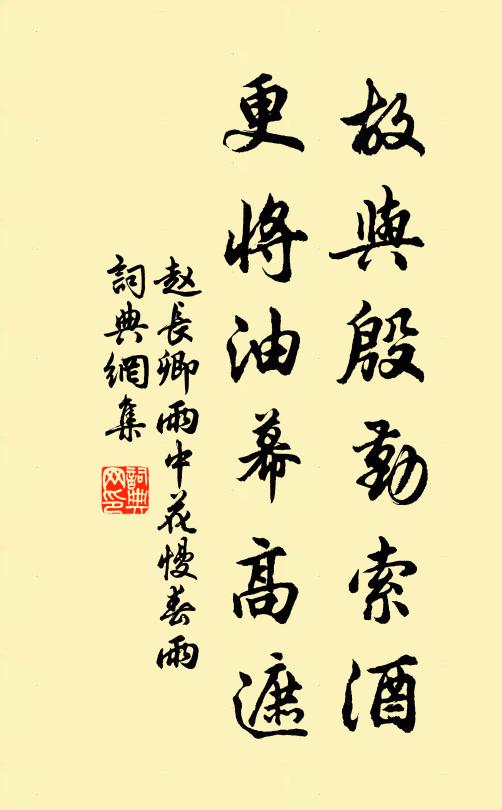 故與殷勤索酒
更將油幕高遮
赵長卿雨中花慢春雨
詞典網集
詞典
网印